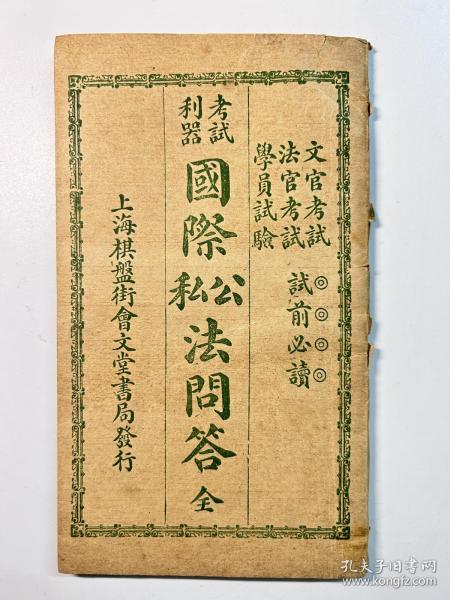 文官考試
法官考試
學員試驗
試前必讀
◎◎◎◎
考試
利器
國際公私法問答全
上海棋盤街會文堂書局發行
孔夫子旧书网
www.kongfz.com